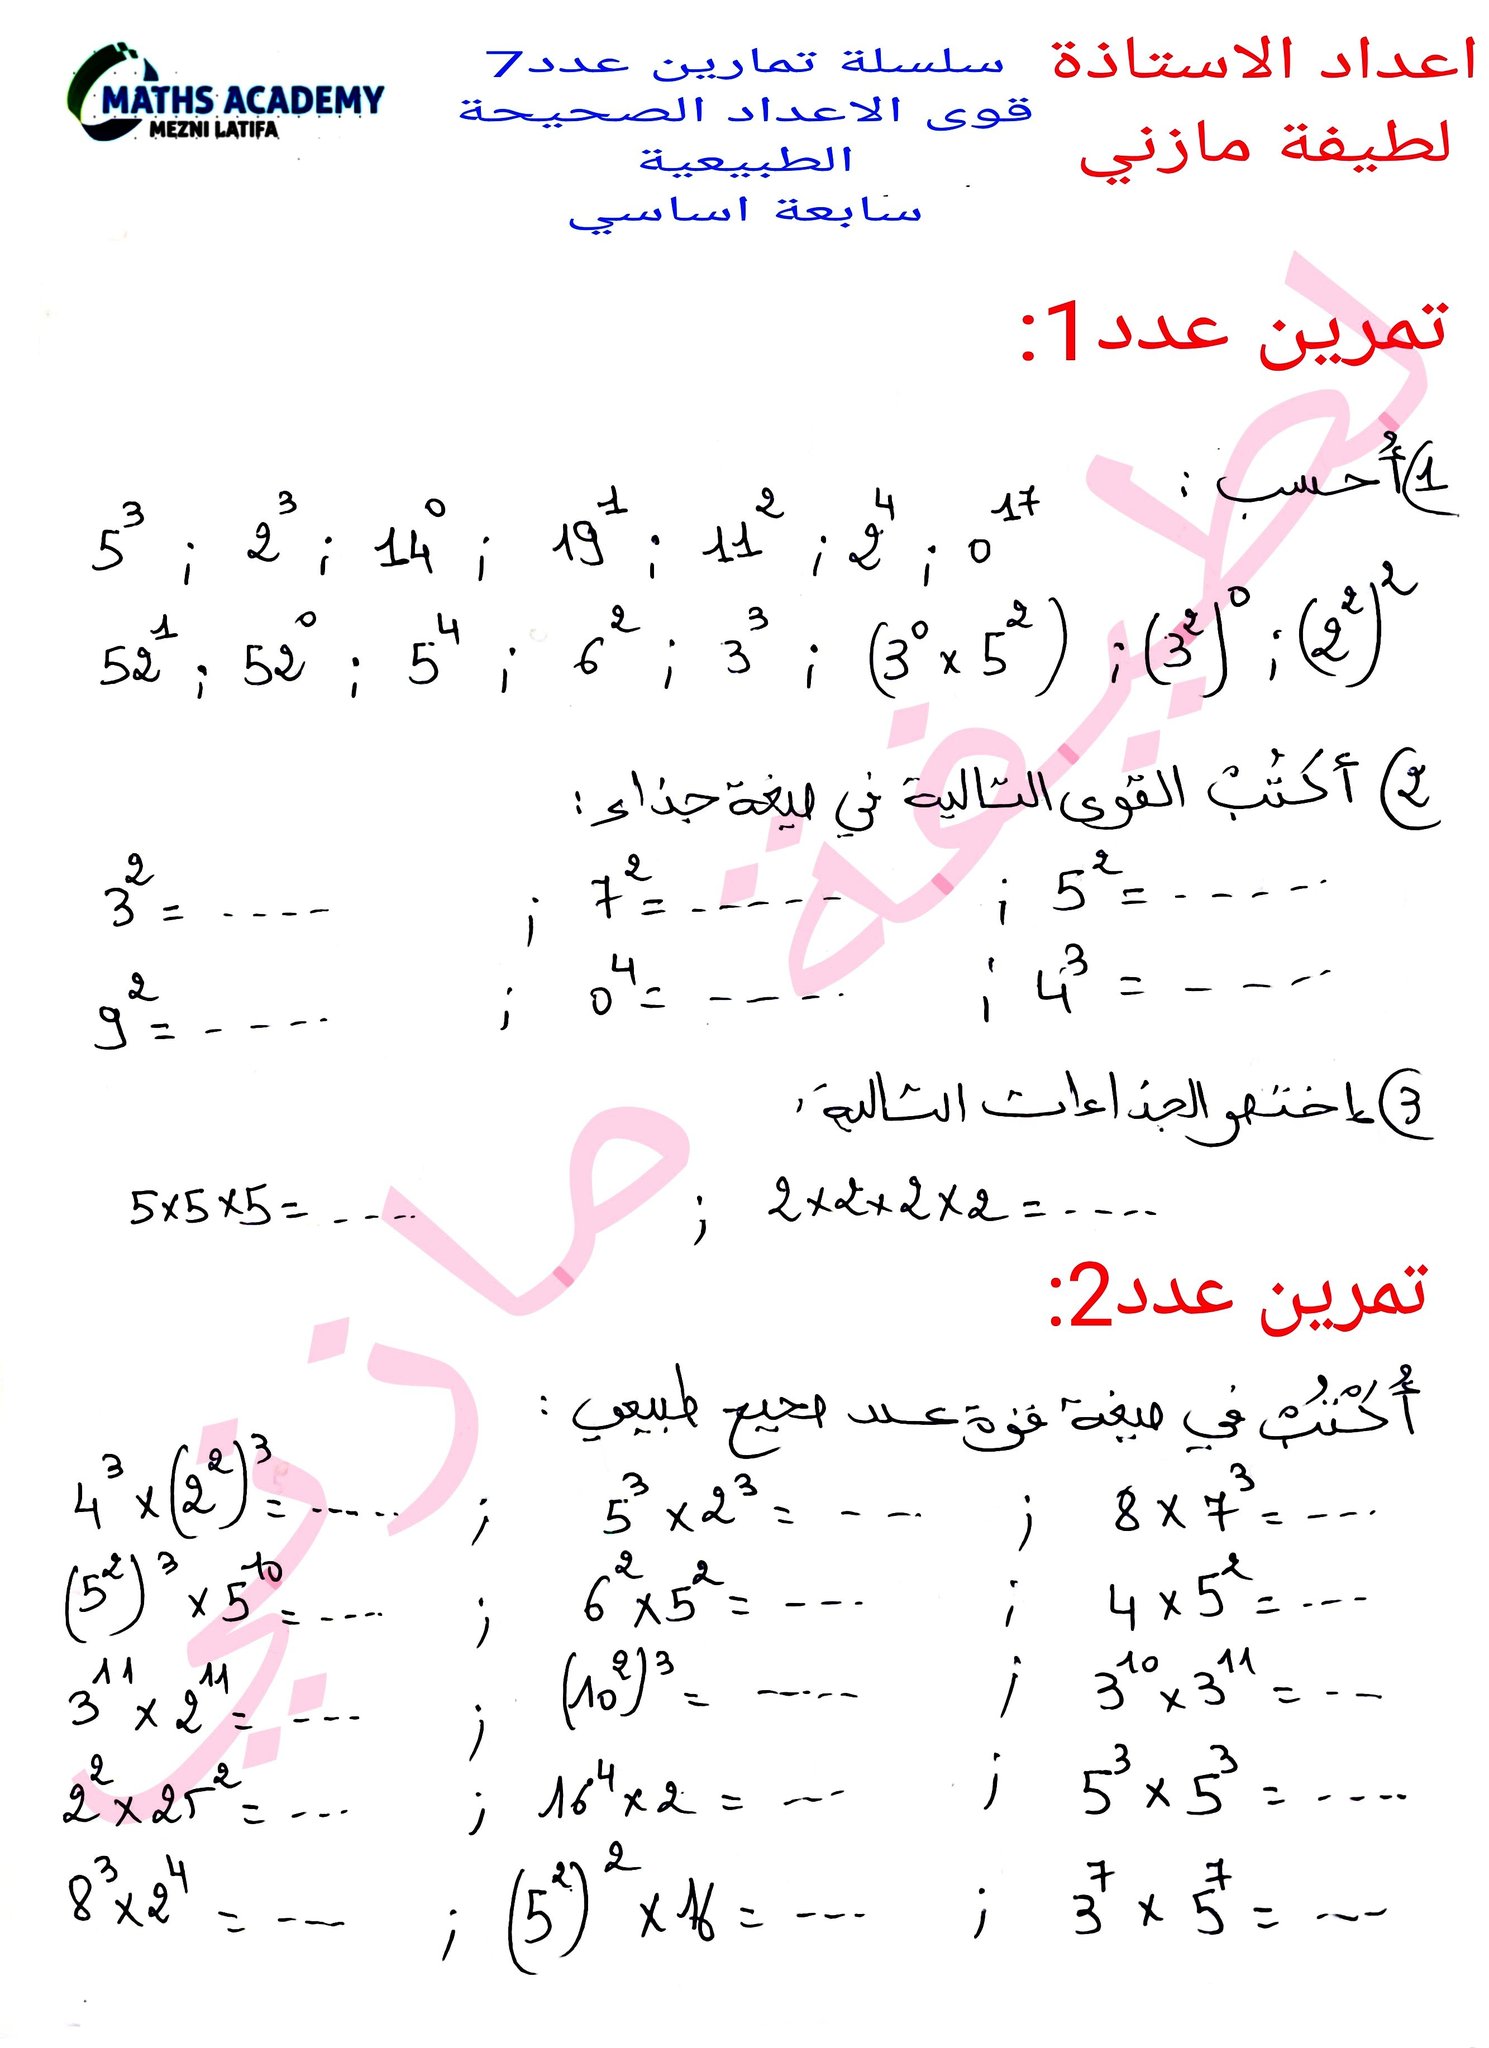 MATHS ACADEMY
MEZNI LATIFA
سلسلة تمارين عدد7
قوى الاعداد الصحيحة
الطبيعية
سابعة اساسي
اعداد الاستاذة
لطيفة مازني
تمرين عدد1:
1) أُحسب :
5³ ; 2³ ; 14⁰ ; 19¹ ; 11² ; 2⁴ ; 0¹⁷
52¹ ; 52⁰ ; 5⁴ ; 6² ; 3³ ; (3⁰ × 5²) ; (3²)⁰ ; (2²)²
2) أكتُبْ القوى التالية في صيغة جذاء :
3² = ---- ; 7² = ----- ; 5² = -----
9² = ---- ; 0⁴ = ---- ; 4³ = ----
3) إختصر الجذاءات التالية.
5×5×5 = ---- ; 2×2×2×2 = ----
تمرين عدد2:
أُكْتُبْ في صيغة قوة عدد صحيح طبيعي :
4³ × (2²)³ = ----- ; 5³ × 2³ = --- ; 8 × 7³ = ---
(5²)³ × 5¹⁰ = ---- ; 6² × 5² = --- ; 4 × 5² = ---
3¹¹ × 2¹¹ = --- ; (10²)³ = ----- ; 3¹⁰ × 3¹¹ = --
2² × 25² = --- ; 16⁴ × 2 = --- ; 5³ × 5³ = ----
8³ × 2⁴ = --- ; (5²)² × 16 = --- ; 3⁷ × 5⁷ = ---
لطيفة مازني